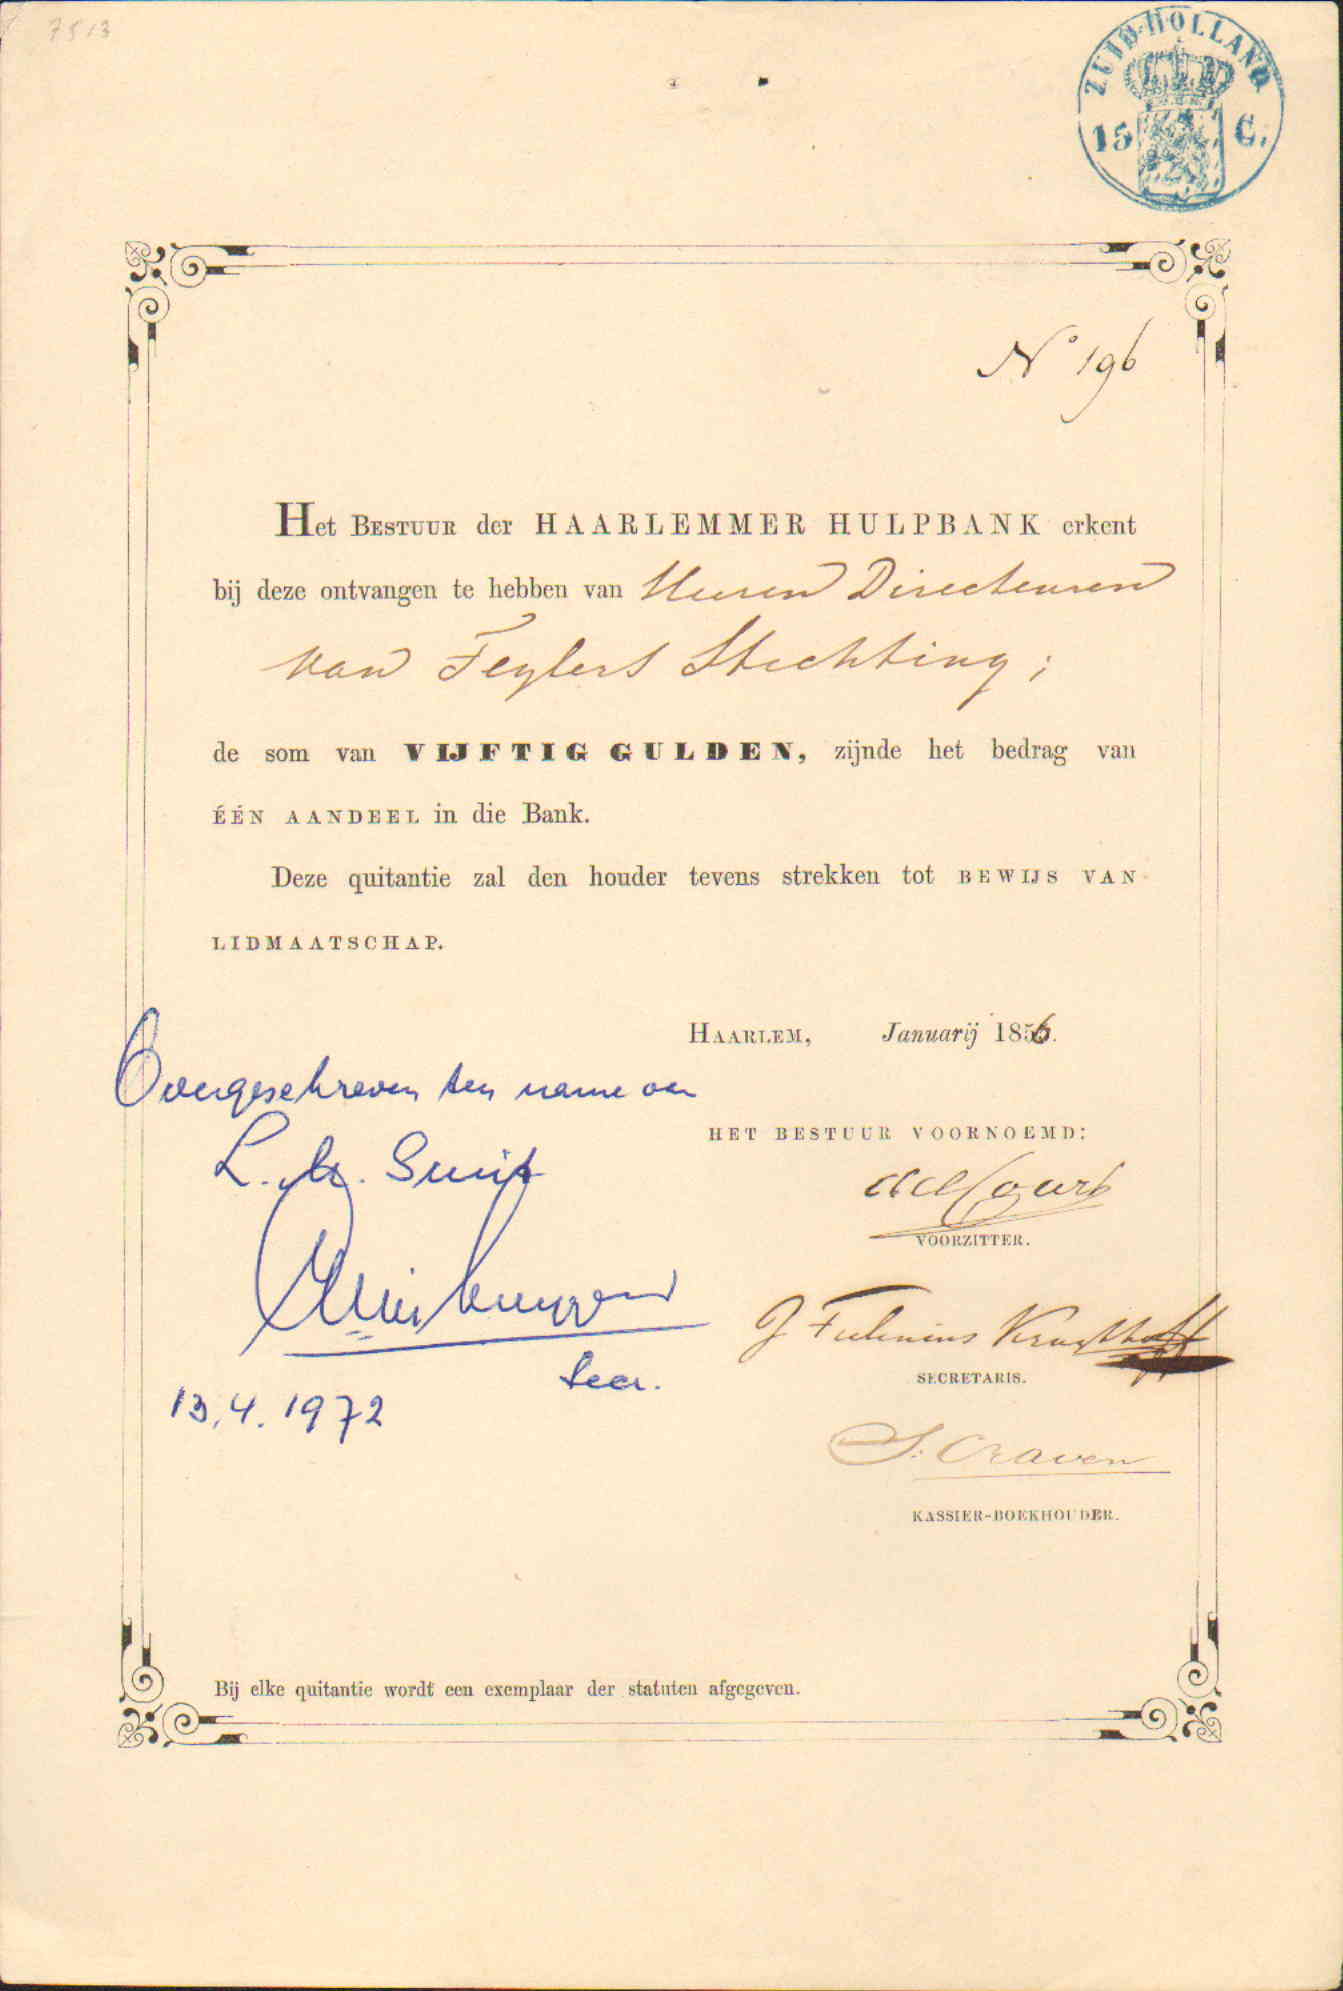 7513
ZUID-HOLLAND
15 C.
N° 196
Het Bestuur der HAARLEMMER HULPBANK erkent
bij deze ontvangen te hebben van Heeren Directeuren
van Teylers Stichting;
de som van VIJFTIG GULDEN, zijnde het bedrag van
ÉÉN AANDEEL in die Bank.
Deze quitantie zal den houder tevens strekken tot BEWIJS VAN
LIDMAATSCHAP.
Haarlem, Januarij 1856.
HET BESTUUR VOORNOEMD:
VOORZITTER.
SECRETARIS.
S. Craven
KASSIER-BOEKHOUDER.
Overgeschreven ten name van
L. M.
Secr.
13.4.1972
Bij elke quitantie wordt een exemplaar der statuten afgegeven.